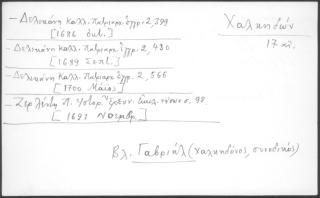 Χαλκηδών
17 αἰ.
- Δελικάνη Καλλ. Πατριαρχ. Ἔγγρ. 2, 399
[1686 Ὀκτ.]
- Δελικάνη Καλλ. Πατριαρχ. Ἔγγρ. 2, 430
[1689 Σεπτ.]
Δελικάνη Καλλ. Πατριαρχ. Ἔγγρ. 2, 566
[1700 Μάϊος]
- Ζερλέντη Π. Ἱστορ. Ἔρευν. ἐκκλ. νήσων σ. 98
[1691 Νοέμβρ.]
Βλ. Γαβριήλ (Χαλκηδόνος, συνοδικός)